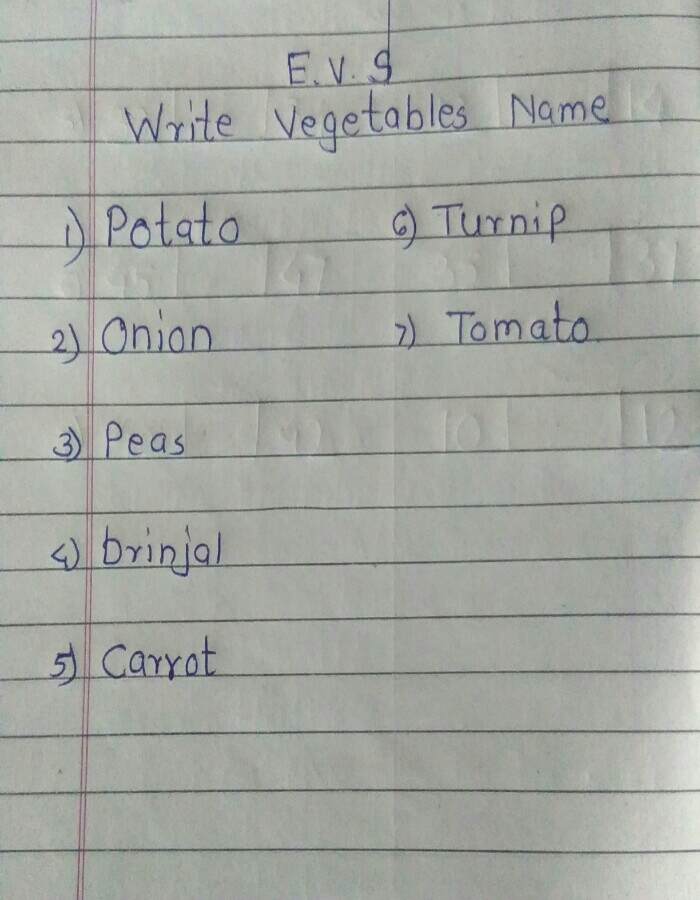 E.V.S
Write Vegetables Name
1) Potato
2) Onion
3) Peas
4) brinjal
5) Carrot
6) Turnip
7) Tomato